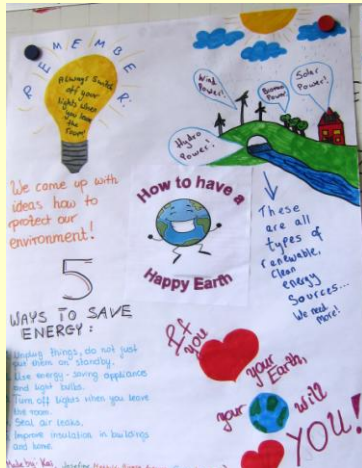 REMEMBER:
Always Switch
off your
lights when
you leave
the room!
Wind
Power!
Biomass
Power!
Solar
Power!
Hydro
Power!
We came up with
ideas how to
protect our
environment!
How to have a
Happy Earth
These
are all
types of
renewable,
clean
energy
sources...
We need
more!
5
WAYS TO SAVE
ENERGY:
Unplug things, do not just
put them on standby.
Use energy-saving appliance
and light bulbs.
Turn off lights when you leave
the room.
Seal air leaks.
Improve insulation in buildings
and home.
If
you
your Earth,
your
will
YOU!
Made by: